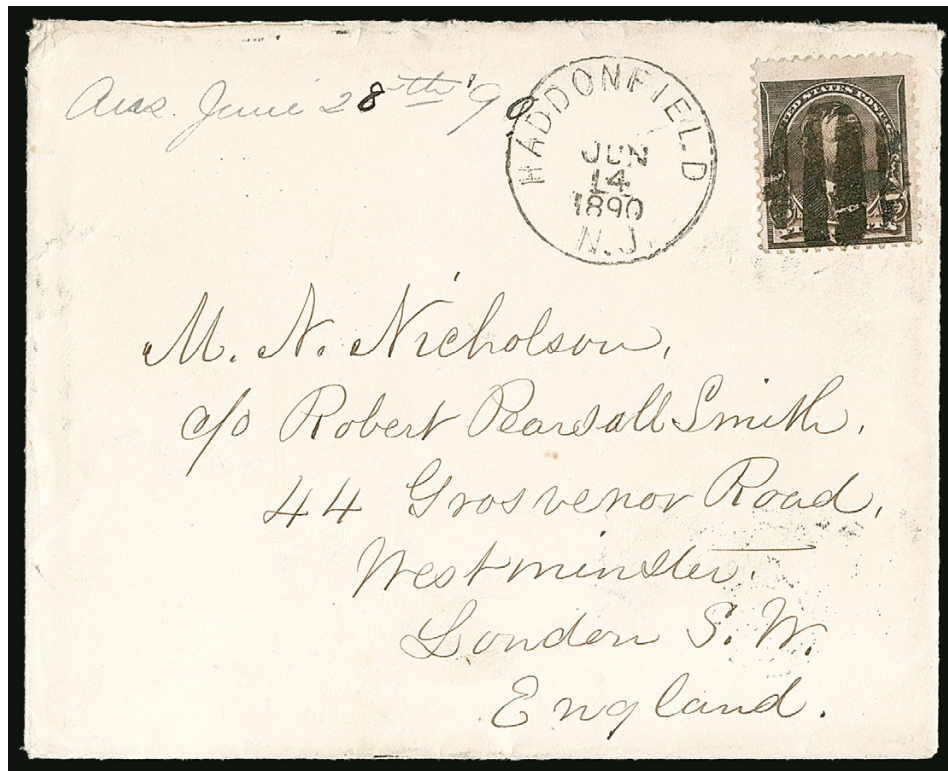 Ans. June 28th '90
HADDONFIELD
JUN
14
1890
N.J.
UNITED STATES POSTAGE
M. N. Nicholson,
c/o Robert Pearsall Smith,
44 Grosvenor Road,
Westminster.
London S. W.
England.